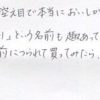 堂々目で本当においしか
」という名前も趣あって
前につられて買ってみたら